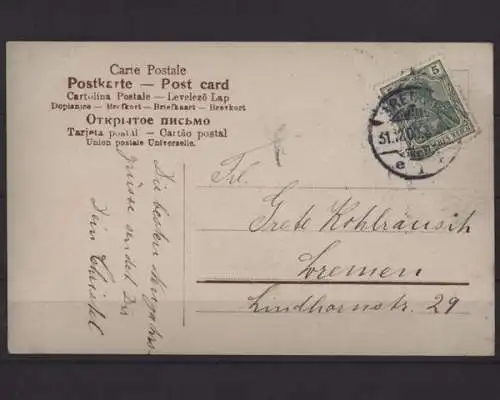 Carte Postale
Postkarte — Post card
Cartolina Postale — Levelező Lap
Dopisnice — Brefkort — Briefkaart — Brevkort
Открытое письмо
Tarjeta postal — Cartão postal
Union postale Universelle.
Die besten Neujahrs-
grüsse sendet Dir
Dein Christel
Frl.
Grete Kohlrausch
Bremen
Lindhornstr. 29
5
31.12.
e